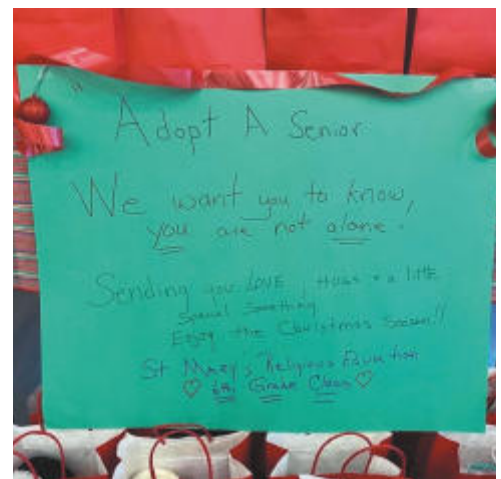 "Adopt A Senior
We want you to know,
you are not alone.
Sending you LOVE, Hugs + a little
Special Something
Enjoy the Christmas Season!!
St Mary's Religious Education
♡ 6th Grade Class ♡